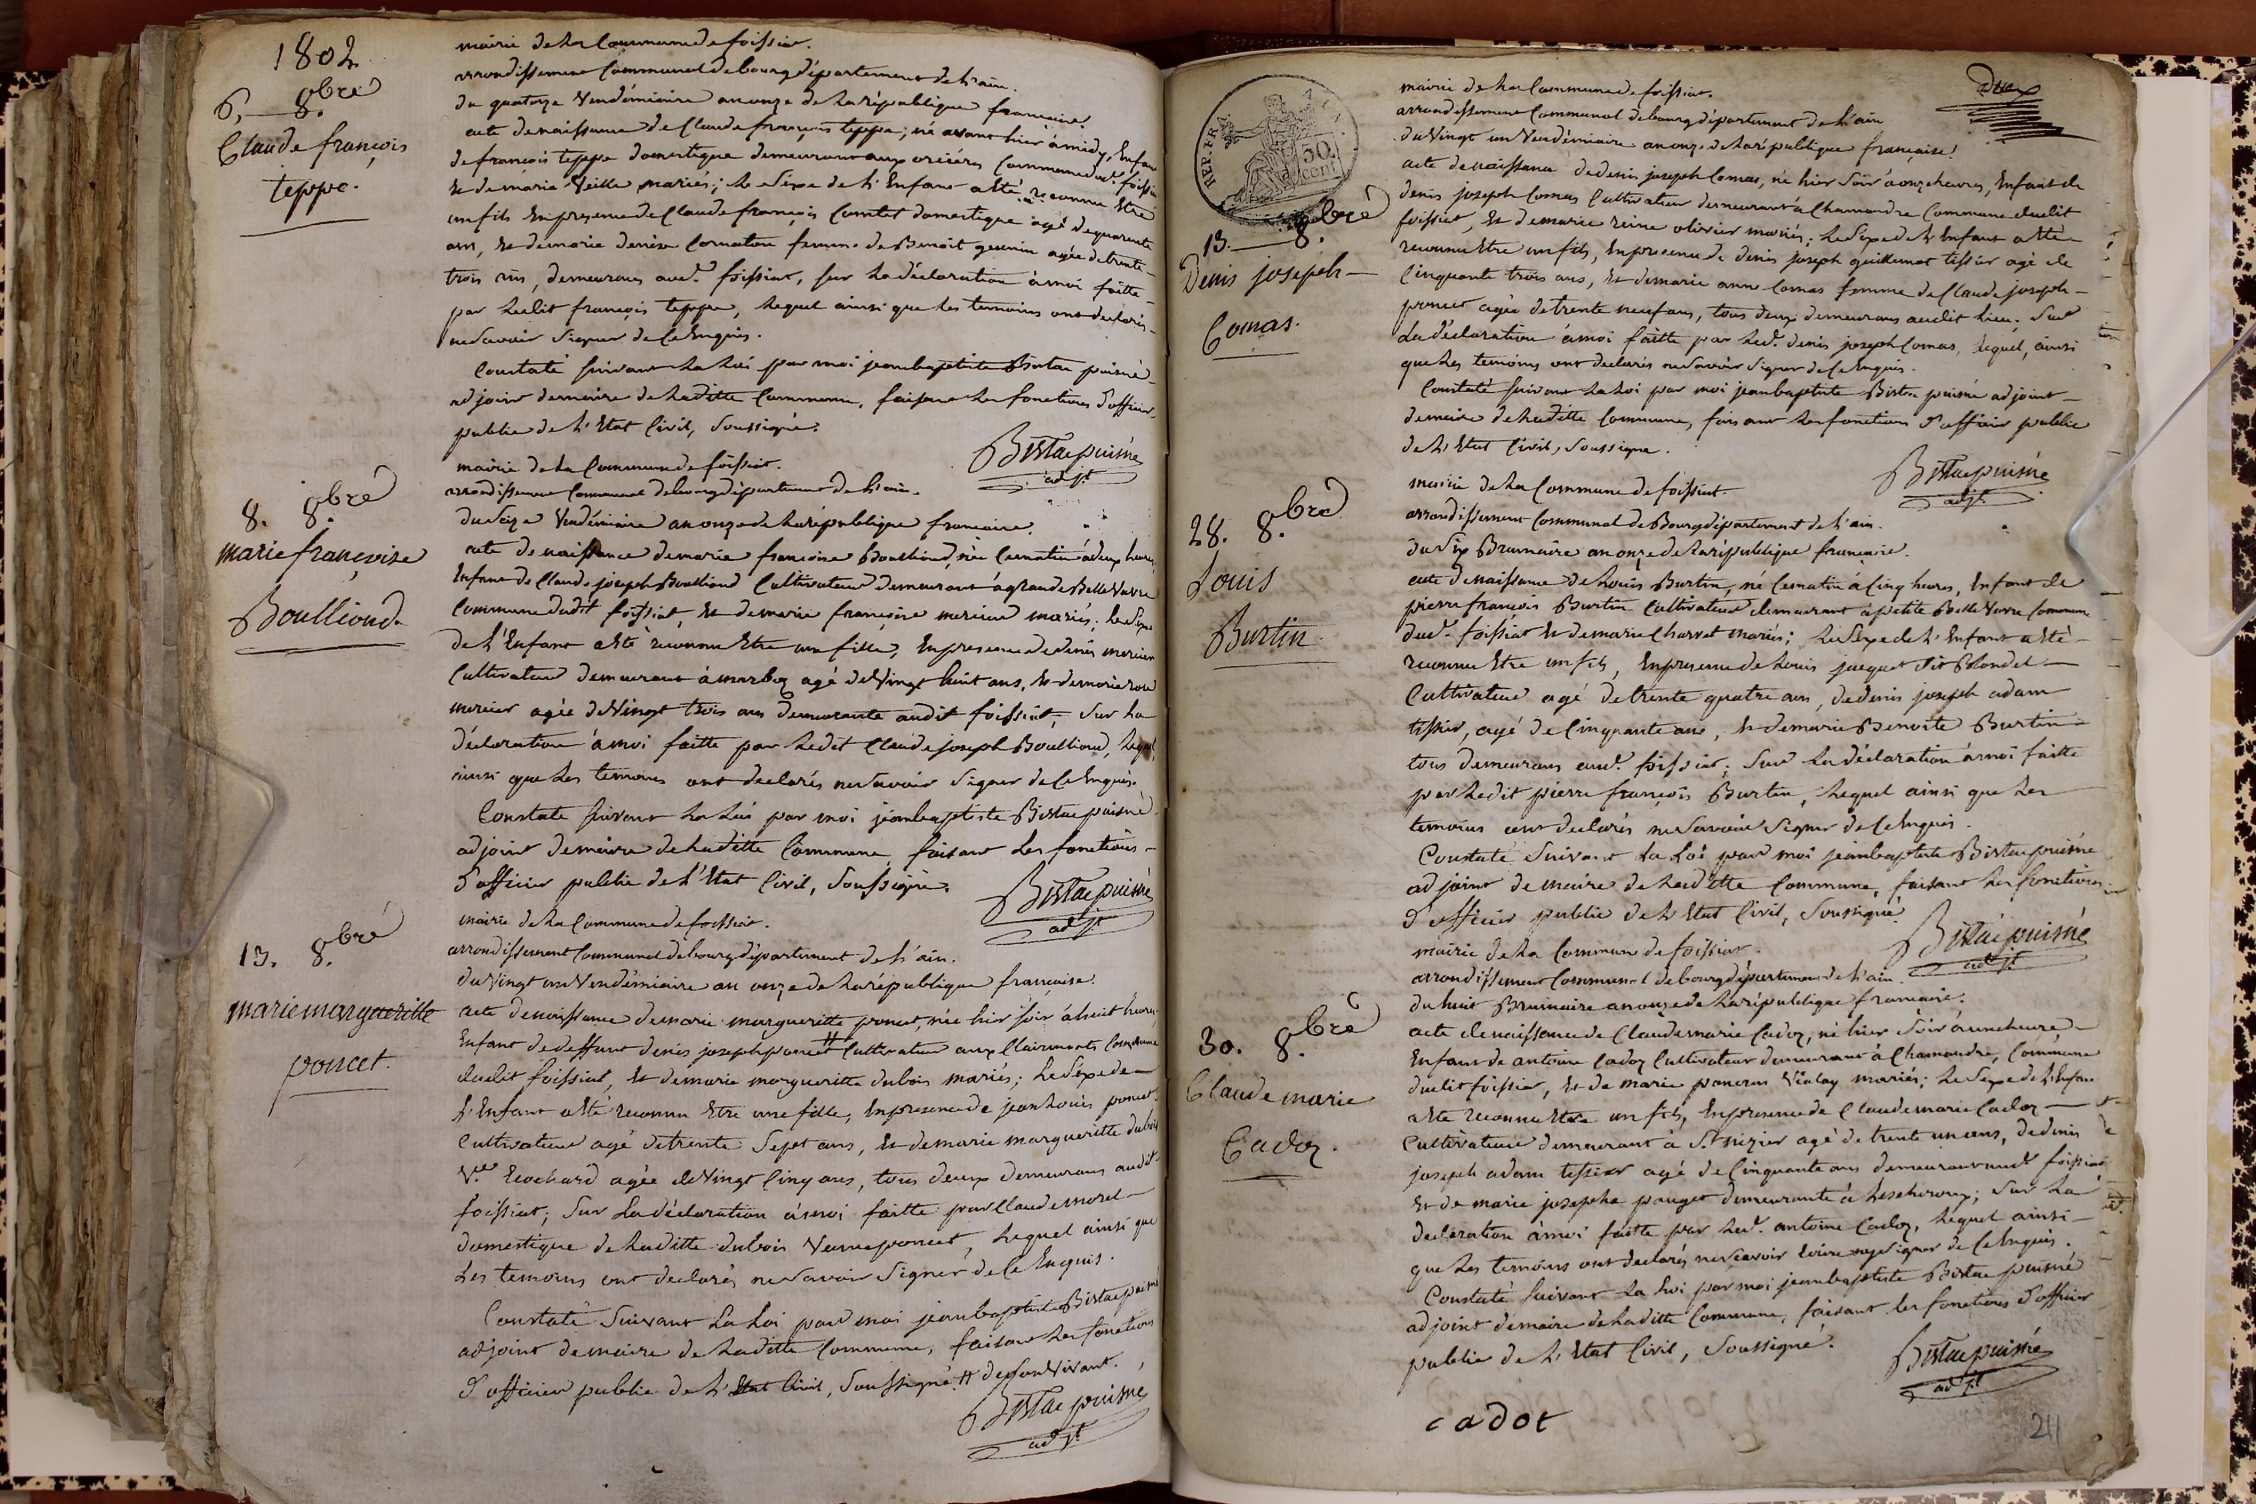 1802
6, 8.bre
Claude françois
teppe.
mairie de la Commune de foissiat.
arrondissement Communal de bourg département de l'ain.
du quatorze Vendémiaire an onze de la république francaise.
acte de naissance de Claude françois teppe; né avant hier à midy, Enfant
de françois teppe domestique demeurant aux Commune dud. foissiat
Et de marie Veille mariés; le sexe de l'Enfant a Eté reconnu Etre
un fils En presence de Claude françois Comtet domestique agé de quarente
ans, Et de marie denise Cornaton femme de Benoit agée de trente
trois ans, demeurans aud.t foissiat, sur la déclaration à moi faitte
par ledit françois teppe, lequel ainsi que les temoins ont declarés
ne savoir signer de Ce Enquis.
Constaté suivant la Loi par moi jean baptiste Bistac puisné
adjoint de maire de laditte Commune, faisant les fonctions d'officier
public de l'Etat Civil, Soussigné.
Bistac puisné
adj.t
8. 8.bre
marie françoise
Boulliond
mairie de la Commune de foissiat.
arrondissement Communal de bourg département de l'ain.
du Seize Vendémiaire an onze de la république francaise.
acte de naissance de marie francoise Boulliond, née Ce matin à deux heures,
Enfant de Claude joseph Boulliond Cultivateur demeurant à grande Belle Vavre
Commune dudit foissiat, Et de marie francoise mercier mariés. Le Sexe
de l'Enfant a Eté reconnu Etre une fille, En presence de denis mercier
Cultivateur demeurant à marboz agé de Vingt huit ans, Et de marie rose
mercier agée de Vingt trois ans demeurante audit foissiat, Sur la
déclaration à moi faitte par ledit Claude joseph Boulliond, lequel,
ainsi que les temoins ont declarés ne Savoir Signer de Ce Enquis.
Constaté Suivant la Loi par moi jean baptiste Bistac puisné
adjoint de maire de laditte Commune faisant les fonctions
d'officier public de l'Etat Civil, Soussigné.
Bistac puisné
adj.t
13. 8.bre
marie margueritte
poncet.
mairie de la Commune de foissiat.
arrondissement Communal de bourg département de l'ain.
du Vingt un Vendémiaire an onze de la république française.
acte de naissance de marie margueritte poncet, née hier soir à huit heures,
Enfant de deffunt denis joseph poncet # Cultivateur aux Clairmonts Commune
dudit foissiat, Et de marie margueritte dubois mariés; Le Sexe de
l'Enfant a Eté reconnu Etre une fille, En presence de jean Louis poncet
Cultivateur agé de trente Sept ans, Et de marie margueritte dubois
V.ve agée de Vingt Cinq ans, tous deux demeurans audit
foissiat; Sur la déclaration à moi faitte par Claude morel
domestique de laditte dubois Veuve poncet, lequel ainsi que
Les temoins ont declarés ne Savoir Signer de Ce Enquis.
Constaté Suivant La Loi par moi jean baptiste Bistac puisné
adjoint de maire de laditte Commune, faisant les fonctions
d'officier public de l'Etat Civil, Soussigné. # de son Vivant.
Bistac puisné
adj.t
deux
REP. FRA
50
cent
13. 8.bre
Denis joseph
Comas.
mairie de la Commune de foissiat.
arrondissement Communal de bourg département de l'ain
du Vingt un Vendémiaire an onze de la république française.
acte de naissance de denis joseph Comas, né hier soir à onze heures, Enfant de
denis joseph Comas Cultivateur demeurant à Chamandre Commune dudit
foissiat, Et de marie reine olivier mariés; Le Sexe de l'Enfant a Eté
reconnu Etre un fils, En presence de denis joseph guillemot tissier agé de
Cinquante trois ans, Et de marie anne Comas femme de Claude joseph
poncet agée de trente neuf ans, tous deux demeurans audit Lieu. Sur
La déclaration à moi faitte par led.t denis joseph Comas, lequel, ainsi
que les temoins ont declarés ne savoir signer de Ce Enquis.
Constaté suivant la Loi par moi jean baptiste Bistac puisné adjoint
de maire de laditte Commune, faisant les fonctions d'officier public
de l'Etat Civil, Soussigné.
Bistac puisné
adj.t
28. 8.bre
Louis
Burtin
mairie de la Commune de foissiat.
arrondissement Communal de Bourg département de l'ain.
du Six Brumaire an onze de la république francaise.
acte de naissance de Louis Burtin, né Ce matin à Cinq heures, Enfant de
pierre françois Burtin Cultivateur demeurant à petite Belle Vavre Commune
dud.t foissiat Et de marie Charvet mariés; Le Sexe de l'Enfant a Eté
reconnu Etre un fils, En presence de Louis jacquet dit Blondel
Cultivateur agé de trente quatre ans, de denis joseph adam
tissier, agé de Cinquante ans, Et de marie Benoite Burtin
tous demeurans aud.t foissiat; Sur la déclaration à moi faitte
par ledit pierre françois Burtin, lequel ainsi que les
temoins ont declarés ne Savoir Signer de Ce Enquis.
Constaté Suivant La Loi par moi jean baptiste Bistac puisné
adjoint de maire de laditte Commune, faisant les fonctions
d'officier public de l'Etat Civil, Soussigné.
Bistac puisné
adj.t
30. 8.bre
Claude marie
Cadoz.
mairie de la Commune de foissiat.
arrondissement Communal de bourg département de l'ain.
du huit Brumaire an onze de la république francaise.
acte de naissance de Claude marie Cadoz, né hier Soir à une heure
Enfant de antoine Cadoz Cultivateur demeurant à Chamandre, Commune
dudit foissiat, Et de marie Vialay mariés; le Sexe de l'Enfant
a Eté reconnu Etre un fils, En presence de Claude marie Cadoz
Cultivateur demeurant à St nizier agé de trente un ans, de denis
joseph adam tissier agé de Cinquante ans demeurant aud.t foissiat
Et de marie josephe pauget demeurante à Lescheroux; Sur La
declaration à moi faitte par led.t antoine Cadoz, lequel ainsi
que les temoins ont declarés ne Savoir Ecrire ny Signer de Ce Enquis.
Constaté Suivant La Loi par moi jean baptiste Bistac puisné
adjoint de maire de laditte Commune, faisant les fonctions d'officier
public de l'Etat Civil, Soussigné.
Bistac puisné
adj.t
cadot
241